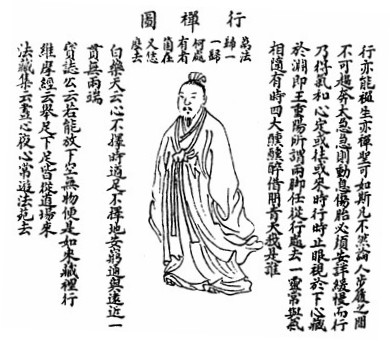 行禪圖
行亦能禪坐亦禪聖可如斯凡不然論人步履之間
不可趨奔太急急則動息傷胎必須安詳緩慢而行
乃得氣和心定或往或來時行時止眼視於下心藏
於淵即王重陽所謂兩脚任從行處去一靈常與氣
相隨有時四大醺醺醉借問青天我是誰
為法
歸一
一歸
何處
有者
箇在
又恁
麼去
白樂天云心不擇時適足不擇地安窮通與遠近一
貫無兩端
寶誌公云若能放下空無物便是如來藏裡行
維摩經云舉足下足皆從道場來
法藏集云晝心夜心常遊法苑去